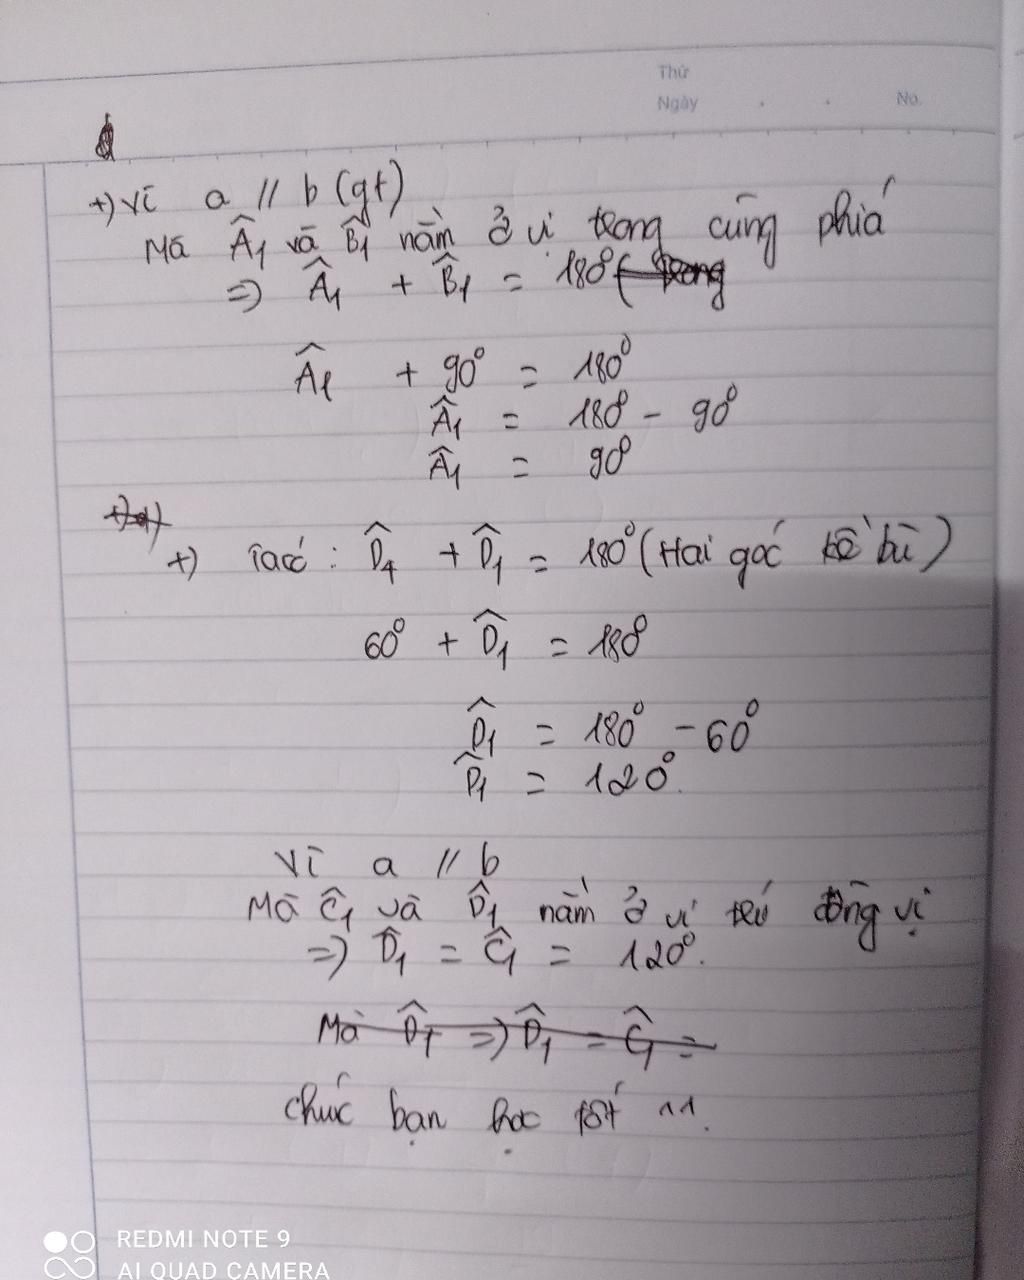 Thứ
Ngày . . No.
+) Vì a // b (gt)
Mà Â₁ và B̂₁ nằm ở vị trong cùng phía
=> Â₁ + B̂₁ = 180⁰ ( trong
Â₁ + 90⁰ = 180⁰
Â₁ = 180⁰ - 90⁰
Â₁ = 90⁰
+) Ta có : D̂₄ + D̂₁ = 180⁰ (Hai góc kề bù)
60⁰ + D̂₁ = 180⁰
D̂₁ = 180⁰ - 60⁰
D̂₁ = 120⁰.
Vì a // b
Mà Ĉ₁ và D̂₁ nằm ở vị trí đồng vị
=> D̂₁ = Ĉ₁ = 120⁰.
Mà D̂₁ => D̂₁ = Ĉ₁ =
chúc bạn học tốt ^^.
REDMI NOTE 9
AI QUAD CAMERA